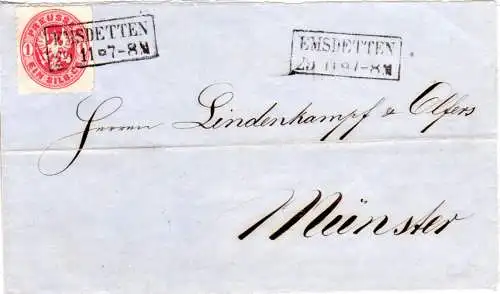 PREUSSEN
1
EIN SILB.GR.
EMSDETTEN
11 7-8 N
EMSDETTEN
29 11 7-8 N
Herren Lindenkampf & Olfers
Münster